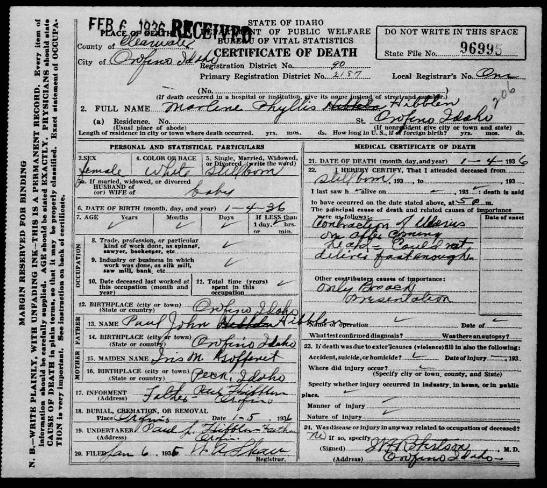 FEB 6 1936 RECEIVED
STATE OF IDAHO
DEPARTMENT OF PUBLIC WELFARE
BUREAU OF VITAL STATISTICS
CERTIFICATE OF DEATH
DO NOT WRITE IN THIS SPACE
State File No. 96995
PLACE OF DEATH
County of Clearwater
City of Orofino Idaho
Registration District No. 90
Primary Registration District No. 2187
Local Registrar's No. One
(No.
(If death occurred in a hospital or institution, give its name instead of street and number)
2. FULL NAME Marlene Phyllis Hibbln
(a) Residence. No. St. Orofino Idaho
(Usual place of abode) (If nonresident give city or town and state)
Length of residence in city or town where death occurred. yrs. mos. ds. How long in U. S. if of foreign birth? yrs. mos. ds.
PERSONAL AND STATISTICAL PARTICULARS
2. SEX female
4. COLOR OR RACE White
5. Single, Married, Widowed, or Divorced (write the word) Stillborn
If married, widowed, or divorced
HUSBAND of
(or) WIFE of baby
6. DATE OF BIRTH (month, day, and year) 1-4-36
7. AGE Years Months Days If LESS than 1 day, hrs. or min.
OCCUPATION
8. Trade, profession, or particular kind of work done, as spinner, sawyer, bookkeeper, etc.
9. Industry or business in which work was done, as silk mill, saw mill, bank, etc.
10. Date deceased last worked at this occupation (month and year)
11. Total time (years) spent in this occupation
12. BIRTHPLACE (city or town) Orofino Idaho
(State or country)
FATHER
13. NAME Paul John Hibbln
14. BIRTHPLACE (city or town) Orofino Idaho
(State or country)
MOTHER
15. MAIDEN NAME Iris M.
16. BIRTHPLACE (city or town) Peck, Idaho
(State or country)
17. INFORMANT Father Paul Hibbln
(Address) Orofino
18. BURIAL, CREMATION, OR REMOVAL
Place Orofino Date 1-5 1936
19. UNDERTAKER Paul J. Hibbln Father
(Address) Orofino
20. FILED Jan 6, 1936
Registrar.
MEDICAL CERTIFICATE OF DEATH
21. DATE OF DEATH (month, day, and year) 1-4-1936
22. I HEREBY CERTIFY, That I attended deceased from
Stillborn, 193 , to , 193
I last saw h alive on , 193 ; death is said
to have occurred on the date stated above, at 5 a m.
The principal cause of death and related causes of importance
were as follows:
Contraction of Uterus
on after coming
head - Could not
deliver fast enough
Other contributory causes of importance:
Only Breach
Presentation
Name of operation
What test confirmed diagnosis? Was there an autopsy?
23. If death was due to external causes (violence) fill in also the following:
Accident, suicide, or homicide? Date of injury , 193
Where did injury occur?
(Specify city or town, county, and State)
Specify whether injury occurred in industry, in home, or in public place.
Manner of injury
Nature of injury
24. Was disease or injury in any way related to occupation of deceased?
No If so, specify
(Signed) Robertson M. D.
(Address) Orofino Idaho
MARGIN RESERVED FOR BINDING
N. B.—WRITE PLAINLY, WITH UNFADING INK—THIS IS A PERMANENT RECORD. Every item of
information should be carefully supplied. AGE should be stated EXACTLY. PHYSICIANS should state
CAUSE OF DEATH in plain terms, so that it may be properly classified. Exact statement of OCCUPA-
TION is very important. See instruction on back of certificate.